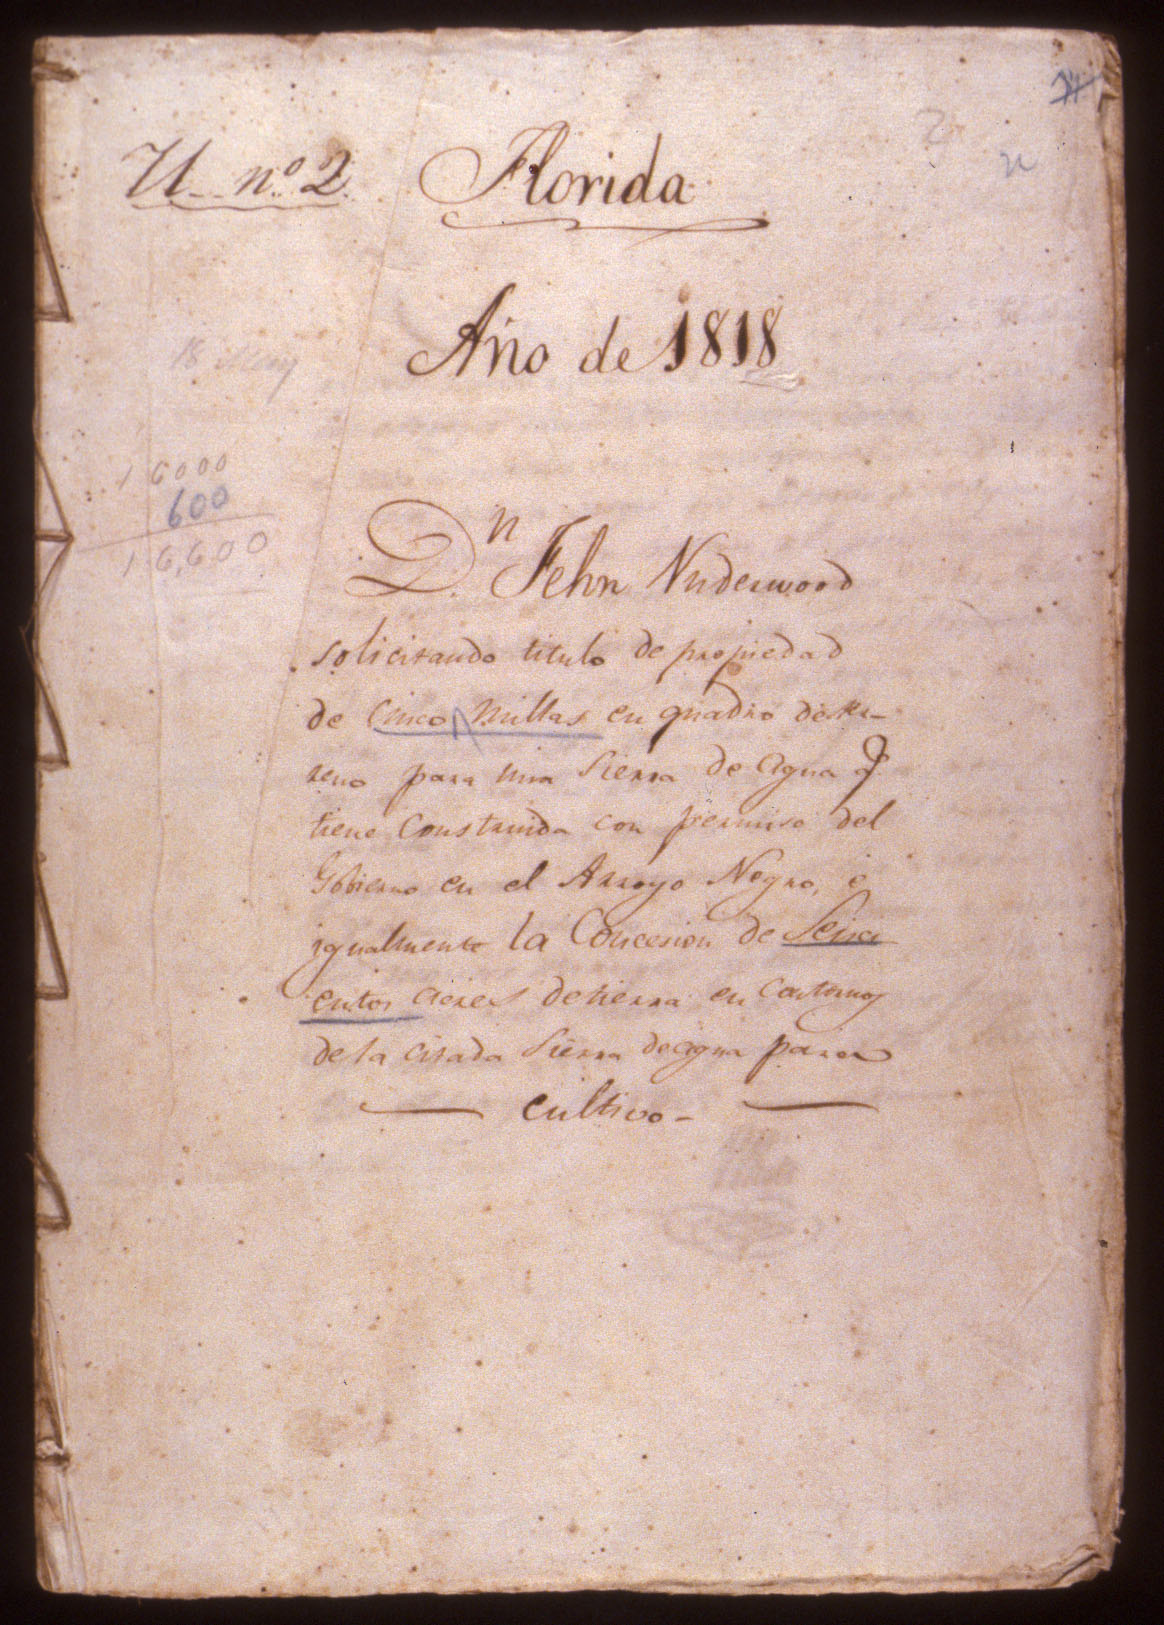 U. nº 2. Florida
Año de 1818
16000
600
16,600
Dn. Fehn Nuderwood
solicitando titulo de propiedad
de Cinco Millas en quadro de ter-
reno para una Sierra de Agua q
tiene Construida con permiso del
Gobierno en el Arroyo Negro, e
igualmente la Concesion de Seisci
entos acres de tierra en
de la citada Sierra de agua para
cultivo-